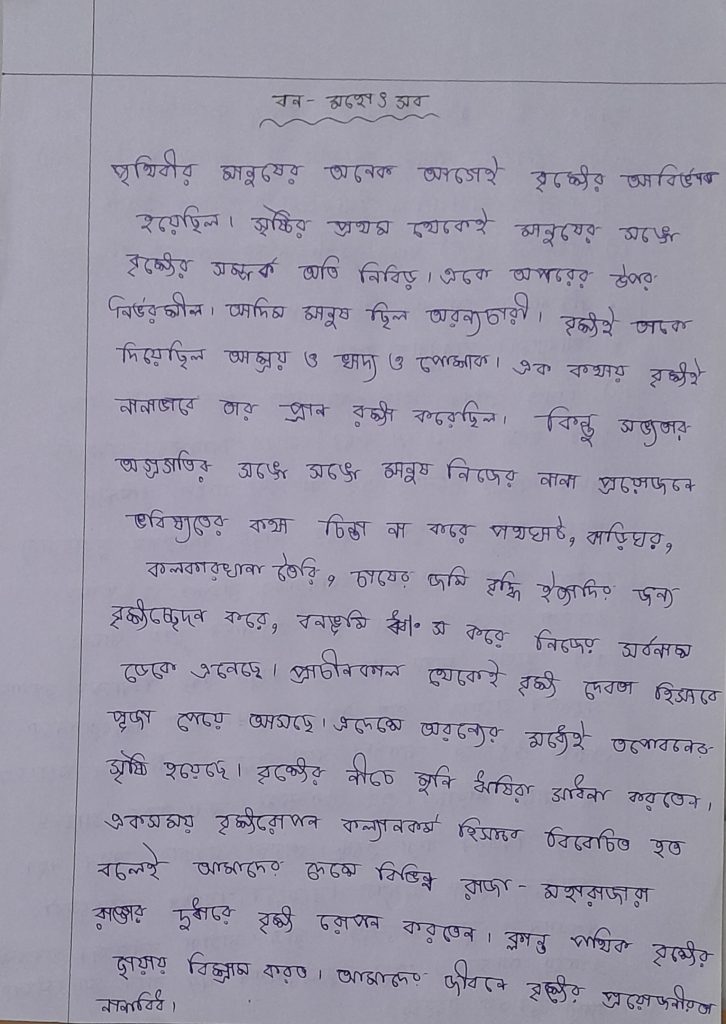 বন - মহোৎসব
পৃথিবীর মানুষের অনেক আগেই বৃক্ষের আবির্ভাব
হয়েছিল। সৃষ্টির প্রথম থেকেই মানুষের সঙ্গে
বৃক্ষের সম্পর্ক অতি নিবিড়। একে অপরের উপর
নির্ভরশীল। আদিম মানুষ ছিল অরন্যচারী। বৃক্ষই তাকে
দিয়েছিল আশ্রয় ও খাদ্য ও পোশাক। এক কথায় বৃক্ষই
নানাভাবে তার প্রান রক্ষা করেছিল। কিন্তু সভ্যতার
অগ্রগতির সঙ্গে সঙ্গে মানুষ নিজের নানা প্রয়োজনে
ভবিষ্যতের কথা চিন্তা না করে পথঘাট, বাড়িঘর,
কলকারখানা তৈরি, চাষের জমি বৃদ্ধি ইত্যাদির জন্য
বৃক্ষচ্ছেদন করে, বনভূমি ধ্বংস করে নিজের সর্বনাশ
ডেকে এনেছে। প্রাচীনকাল থেকেই বৃক্ষ দেবতা হিসাবে
পূজা পেয়ে আসছে। এদেশে অরন্যের মধ্যেই তপোবনের
সৃষ্টি হয়েছে। বৃক্ষের নীচে মুনি ঋষিরা সাধনা করতেন।
একসময় বৃক্ষরোপন কল্যানকর্ম হিসাবে বিবেচিত হত
বলেই আমাদের দেশে বিভিন্ন রাজা - মহারাজারা
রাস্তার দুধারে বৃক্ষ রোপন করতেন। ক্লান্ত পথিক বৃক্ষের
ছায়ায় বিশ্রাম করত। আমাদের জীবনে বৃক্ষের প্রয়োজনীয়তা
নানাবিধ।